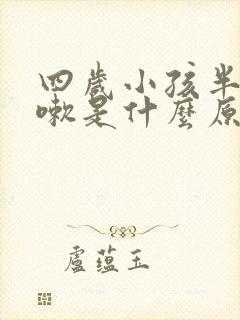 四歲小孩半
嗽是什麼原
盧蕴玉